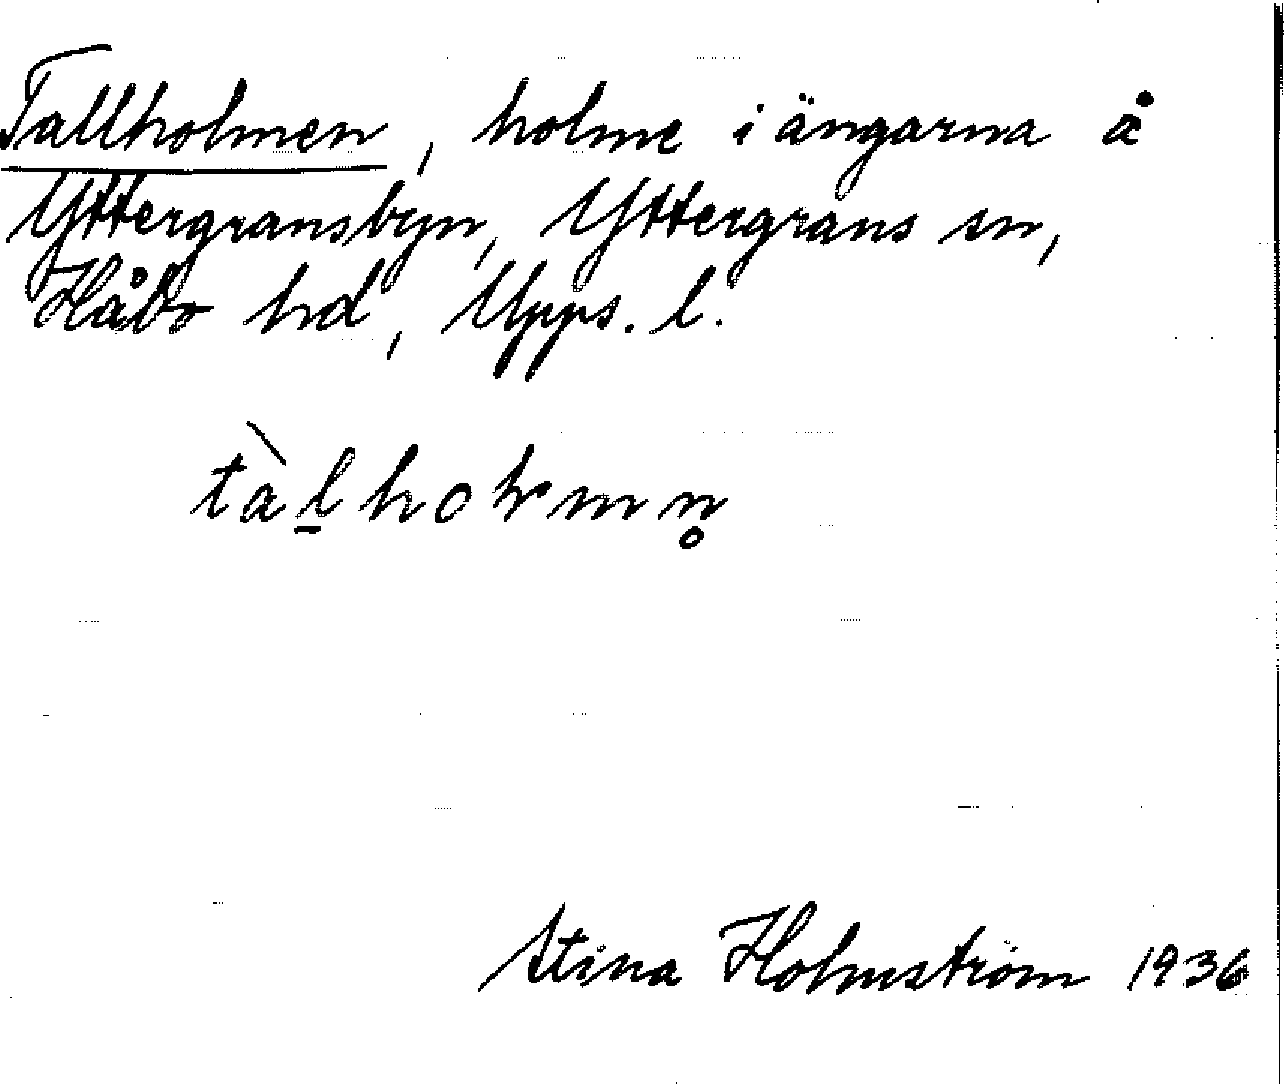 Tallholmen, holme i ängarna å
Yttergransbyn, Yttergrans sn,
Håbo hd, Upps. l.
tàl̠holmn̥
Stina Holmström 1936